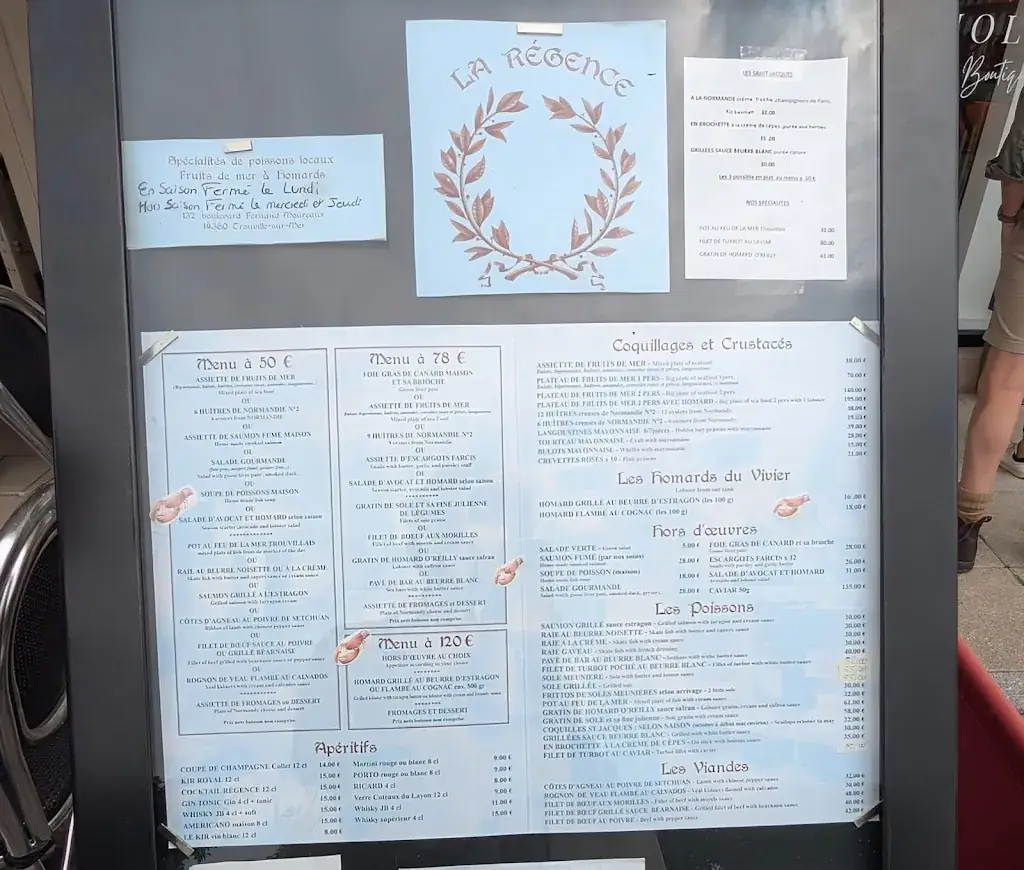 LA RÉGENCE
Spécialités de poissons locaux
Fruits de mer & Homards
En Saison Fermé le Lundi
Hors Saison Fermé le mercredi et Jeudi
132 boulevard Fernand Moureaux
14360 Trouville-sur-Mer
LES SAINT JACQUES
A LA NORMANDE crème fraiche champignons de Paris,
Riz basmati 32.00
EN BROCHETTE a la crème de cèpes, purée aux herbes
GRILLEES SAUCE BEURRE BLANC purée nature
30.00
Les 3 possible en plat au menu a 50 €
NOS SPECIALITES
POT AU FEU DE LA MER Trouvillais 32.00
FILET DE TURBOT AU CAVIAR
GRATIN DE HOMARD O'REILLY 61.00
OL
Boutiq
Menu à 50 €
ASSIETTE DE FRUITS DE MER
Mixed plate of sea food
OU
6 HUÎTRES DE NORMANDIE N°2
OU
ASSIETTE DE SAUMON FUMÉ MAISON
Home made smoked salmon
OU
SALADE GOURMANDE
OU
SOUPE DE POISSONS MAISON
Home made fish soup
OU
SALADE D'AVOCAT ET HOMARD selon saison
Season starter avocado and lobster salad
POT AU FEU DE LA MER TROUVILLAIS
mixed plate of fish from de market of the day
OU
RAIE AU BEURRE NOISETTE OU A LA CRÈME
Skate fish with butter and capers sauce or cream sauce
OU
SAUMON GRILLÉ A L'ESTRAGON
Grilled salmon with tarragon cream
OU
CÔTES D'AGNEAU AU POIVRE DE SETCHUAN
Ribbes of lamb with chinese pepper sauce
OU
FILET DE BŒUF SAUCE AU POIVRE
OU GRILLÉ BÉARNAISE
Fillet of beef grilled with bearnaise sauce or pepper sauce
OU
ROGNON DE VEAU FLAMBÉ AU CALVADOS
Veal kidneys with cream and calvados
ASSIETTE DE FROMAGES ou DESSERT
Plate of Normandy cheese and dessert
Prix nets boisson non comprise
Menu à 78 €
FOIE GRAS DE CANARD MAISON
ET SA BRIOCHE
Goose liver paté
OU
ASSIETTE DE FRUITS DE MER
Mixed plate of sea Food
OU
9 HUÎTRES DE NORMANDIE N°2
9 oysters from Normandie
OU
ASSIETTE D'ESCARGOTS FARCIS
Snails with butter, garlic and parsley stuff
OU
SALADE D'AVOCAT ET HOMARD selon saison
Season starter, avocado and lobster salad
GRATIN DE SOLE ET SA FINE JULIENNE
DE LÉGUMES
Filets of sole gratin
OU
FILET DE BŒUF AUX MORILLES
Fillet of beef with morels and cream sauce
OU
GRATIN DE HOMARD O'REILLY sauce safran
Lobster with saffron sauce
OU
PAVÉ DE BAR AU BEURRE BLANC
Sea bars with white butter sauce
ASSIETTE DE FROMAGES et DESSERT
Plate of Normandy cheese and dessert
Prix nets boisson non comprise
Menu à 120 €
HORS D'ŒUVRE AU CHOIX
Appetizer according to your choice
HOMARD GRILLÉ AU BEURRE D'ESTRAGON
OU FLAMBÉ AU COGNAC env. 500 gr
FROMAGES ET DESSERT
Prix nets boisson non comprise
Apéritifs
COUPE DE CHAMPAGNE Collet 12 cl 14.00 €
KIR ROYAL 12 cl 15,00 €
COCKTAIL RÉGENCE 12 cl 15,00 €
GIN-TONIC Gin 4 cl + tonic 15,00 €
WHISKY JB 4 cl + soft 15,00 €
AMERICANO maison 8 cl 15,00 €
LE KIR vin blanc 12 cl 8.00 €
Martini rouge ou blanc 8 cl 9.00 €
PORTO rouge ou blanc 8 cl 9.00 €
RICARD 4 cl 8.00 €
Verre Coteaux du Layon 12 cl 9.00 €
Whisky JB 4 cl 11.00 €
Whisky supérieur 4 cl 15,00 €
Coquillages et Crustacés
ASSIETTE DE FRUITS DE MER - Mixed plate of seafood 38.00 €
PLATEAU DE FRUITS DE MER 1 PERS - Big plate of seafood 1 pers 70.00 €
PLATEAU DE FRUITS DE MER 2 PERS - Big plate of seafood 2 pers 140.00 €
PLATEAU DE FRUITS DE MER 2 PERS AVEC HOMARD - Big plate of sea food 2 pers with 1 lobster 195.00 €
12 HUÎTRES creuses de Normandie N°2 - 12 oysters from Normandy 38.00 €
6 HUÎTRES creuses de NORMANDIE N°2 - 6 oysters from Normandy 19.00 €
LANGOUSTINES MAYONNAISE 6/7pièces - Dublin bay prawns with mayonnaise 39.00 €
TOURTEAU MAYONNAISE - Crab with mayonnaise 28.00 €
BULOTS MAYONNAISE - Whelks with mayonnaise 15.00 €
CREVETTES ROSES x 10 - Pink prawns 21.00 €
Les Homards du Vivier
Lobster from our tank
HOMARD GRILLÉ AU BEURRE D'ESTRAGON (les 100 g)
HOMARD FLAMBÉ AU COGNAC (les 100 g) 18.00 €
Hors d'œuvres
SALADE VERTE - Green salad 5.00 €
SAUMON FUMÉ (par nos soins) 28.00 €
Home made smoked salmon
SOUPE DE POISSON (maison) 18.00 €
Home made fish soup
SALADE GOURMANDE 28.00 €
FOIE GRAS DE CANARD et sa brioche 28.00 €
Goose liver paté
ESCARGOTS FARCIS x 12 26.00 €
Snails with parsley and garlic butter
SALADE D'AVOCAT ET HOMARD 31.00 €
Avocado and lobster salad
CAVIAR 50g 135.00 €
Les Poissons
SAUMON GRILLÉ sauce estragon - Grilled salmon with taragon and cream 30.00 €
RAIE AU BEURRE NOISETTE - Skate fish with butter and capers sauce 30.00 €
RAIE A LA CRÈME - Skate fish with cream sauce 30.00 €
RAIE GAVEAU - Skate fish with french dressing 30.00 €
PAVÉ DE BAR AU BEURRE BLANC - Seabass with white butter sauce 40.00 €
FILET DE TURBOT POCHÉ AU BEURRE BLANC - Fillet of turbot with white butter sauce
SOLE MEUNIÈRE - Sole with butter and lemon
SOLE GRILLÉE - Grilled sole
FRITTOS DE SOLES MEUNIÈRES selon arrivage - 2 little sole 30,00 €
POT AU FEU DE LA MER - Mixed plate of fish with cream sauce 32.00 €
GRATIN DE HOMARD O'REILLY sauce safran - Lobster gratin, cream and safron sauce 61.00 €
GRATIN DE SOLE et sa fine julienne - Sole gratin with cream sauce 58.00 €
COQUILLES ST JACQUES : SELON SAISON (octobre à début mai environ) - Scallops october to may 32.00 €
GRILLÉES SAUCE BEURRE BLANC - Grilled with white butter sauce 30.00 €
EN BROCHETTE À LA CRÈME DE CÈPES - On stick with boletus sauce 35.00 €
FILET DE TURBOT AU CAVIAR - Turbot filet with caviar
Les Viandes
CÔTES D'AGNEAU AU POIVRE DE SETCHUAN - Lamb with chinese pepper sauce 32.00 €
ROGNON DE VEAU FLAMBÉ AU CALVADOS - Veal kidneys flamed with calvados 30.00 €
FILET DE BŒUF AUX MORILLES - Filet of beef with morels sauce 48.00 €
FILET DE BŒUF GRILLÉ SAUCE BÉARNAISE - Grilled filet of beef with bearnaise sauce 40.00 €
FILET DE BŒUF AU POIVRE - Beef with pepper sauce 42.00 €